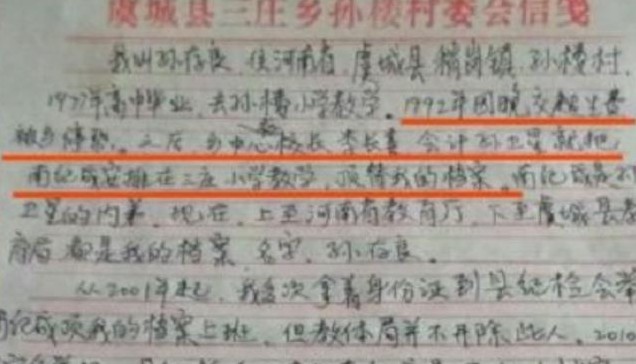 虞城县三庄乡孙楼村委会信笺
我叫孙存良,住河南省,虞城县稍岗镇,孙楼村,
1977年高中毕业,去孙楼小学教学。1992年因晚交超生费
被乡停职。之后,乡中心校校长 李长喜 会计 孙卫星就把
南纪成安排在三庄小学教学,顶替我的档案。南纪成是孙
卫星的内弟,现在,上至河南省教育厅,下至虞城县基
府局 都是我的档案 名字,孙存良。
从2001年起,我多次拿着身份证到县纪检会举
南纪成顶我的档案上班,但教体局并不开除此人。2010